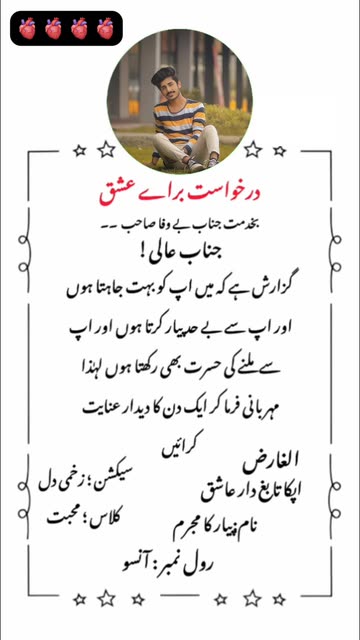 درخواست براے عشق
بخدمت جناب بے وفا صاحب ۔۔
جناب عالی !
گزارش ہے کہ میں اپ کو بہت چاہتا ہوں
اور اپ سے بے حد پیار کرتا ہوں اور اپ
سے ملنے کی حسرت بھی رکھتا ہوں لہٰذا
مہربانی فرما کر ایک دن کا دیدار عنایت
کرائیں
الغارض
اپکا تابغ دار عاشق
سیکشن ؛ زخمی دل
نام ؛پیار کا مجرم
کلاس ؛ محبت
رول نمبر : آنسو